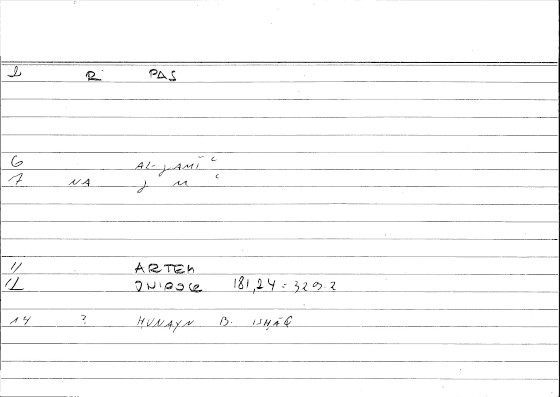 2 R PAS
6 AL-JAMIʿ
7 NA J M ʿ
11 ARTEM
12 181,24 = 329.2
14 ? HUNAYN B. ISHĀQ